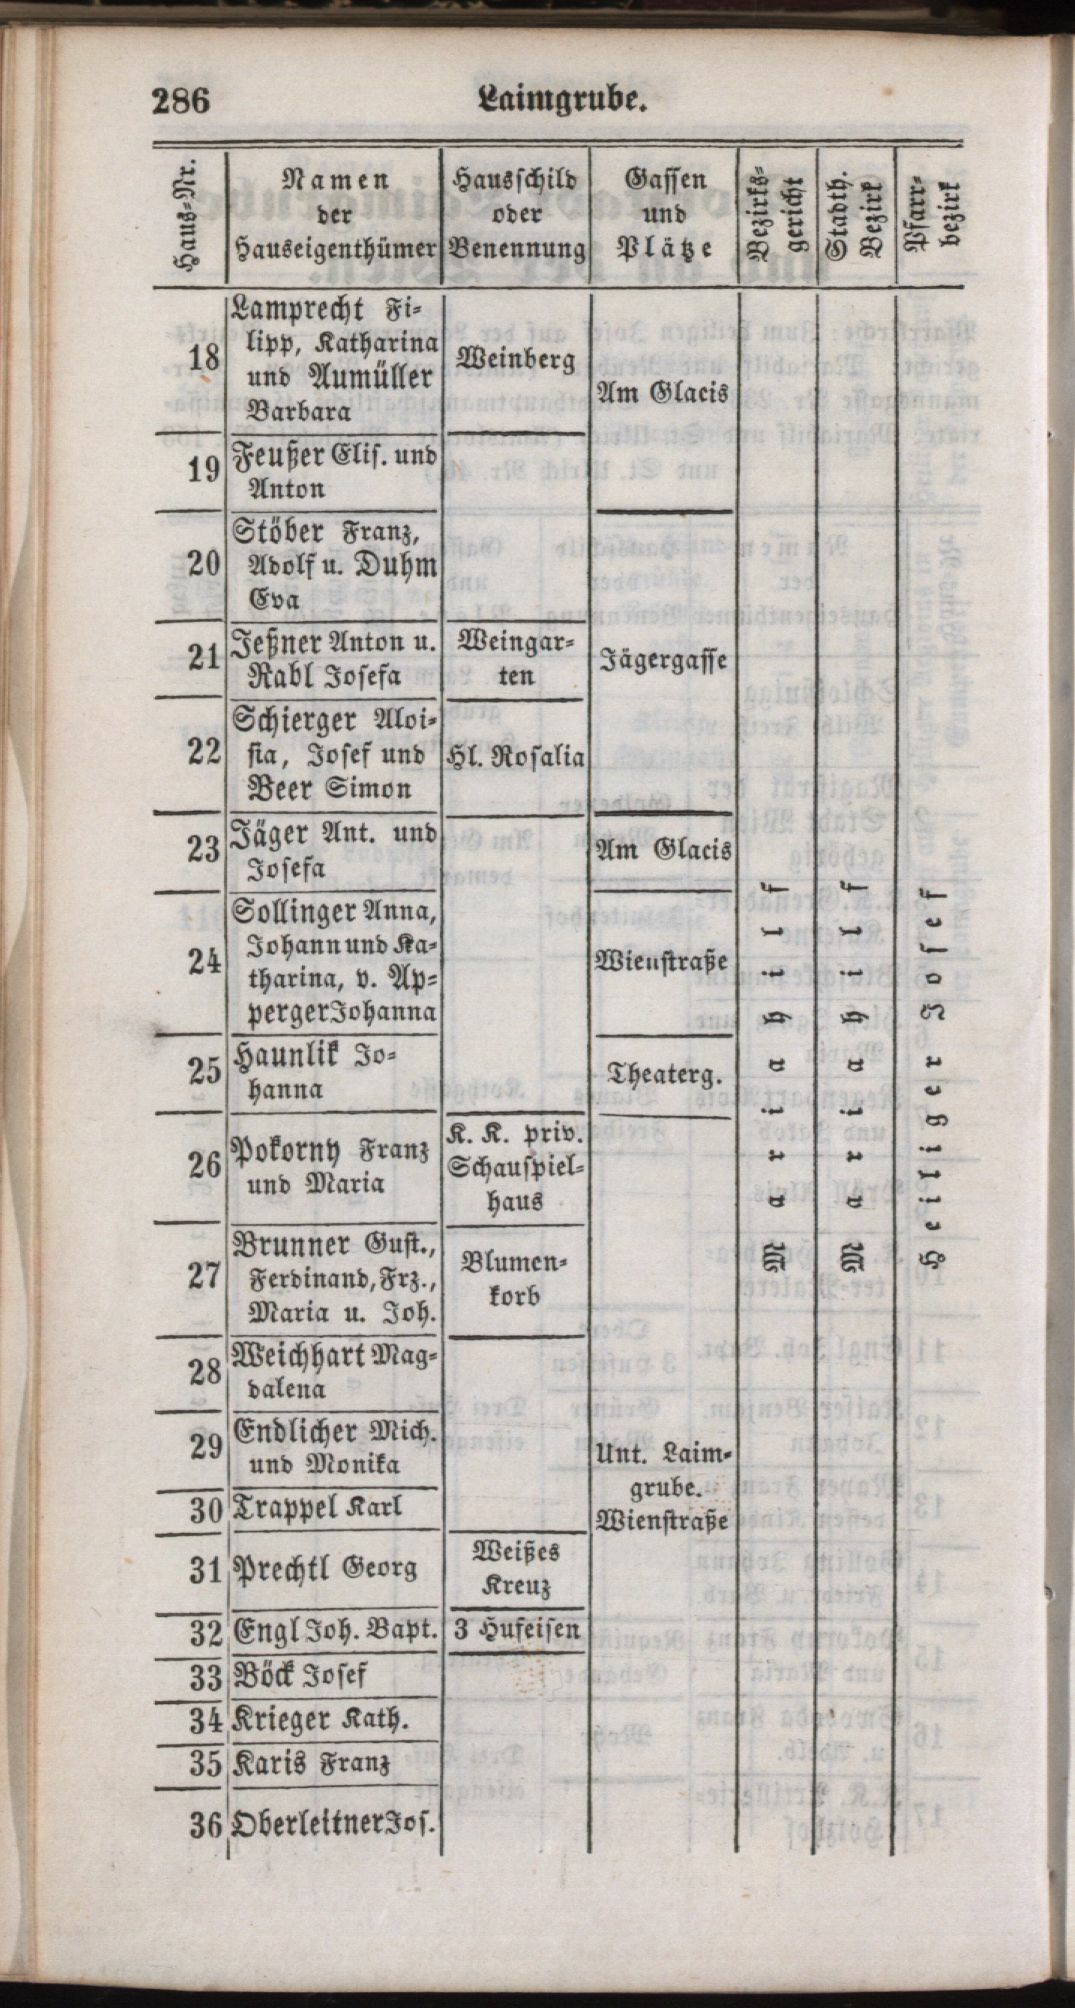 286
Laimgrube.
Haus-Nr.
Namen
der
Hauseigenthümer
Hausschild
oder
Benennung
Gassen
und
Plätze
Bezirks-
gericht
Stadth.
Bezirk
Pfarr-
bezirk
18
Lamprecht Fi-
lipp, Katharina
und Aumüller
Barbara
Weinberg
Am Glacis
19
Feußer Elis. und
Anton
20
Stöber Franz,
Adolf u. Duhm
Eva
21
Jeßner Anton u.
Rabl Josefa
Weingar-
ten
Jägergasse
22
Schierger Aloi-
sia, Josef und
Beer Simon
Hl. Rosalia
23
Jäger Ant. und
Josefa
Am Glacis
24
Sollinger Anna,
Johann und Ka-
tharina, v. Ap-
perger Johanna
Wienstraße
25
Haunlik Jo-
hanna
Theaterg.
26
Pokorny Franz
und Maria
K. K. priv.
Schauspiel-
haus
27
Brunner Gust.,
Ferdinand, Frz.,
Maria u. Joh.
Blumen-
korb
28
Weichhart Mag-
dalena
29
Endlicher Mich.
und Monika
Unt. Laim-
grube.
Wienstraße
30
Trappel Karl
31
Prechtl Georg
Weißes
Kreuz
32
Engl Joh. Bapt.
3 Hufeisen
33
Böck Josef
34
Krieger Kath.
35
Karis Franz
36
Oberleitner Jos.
Mariahilf
Mariahilf
Heiliger Josef